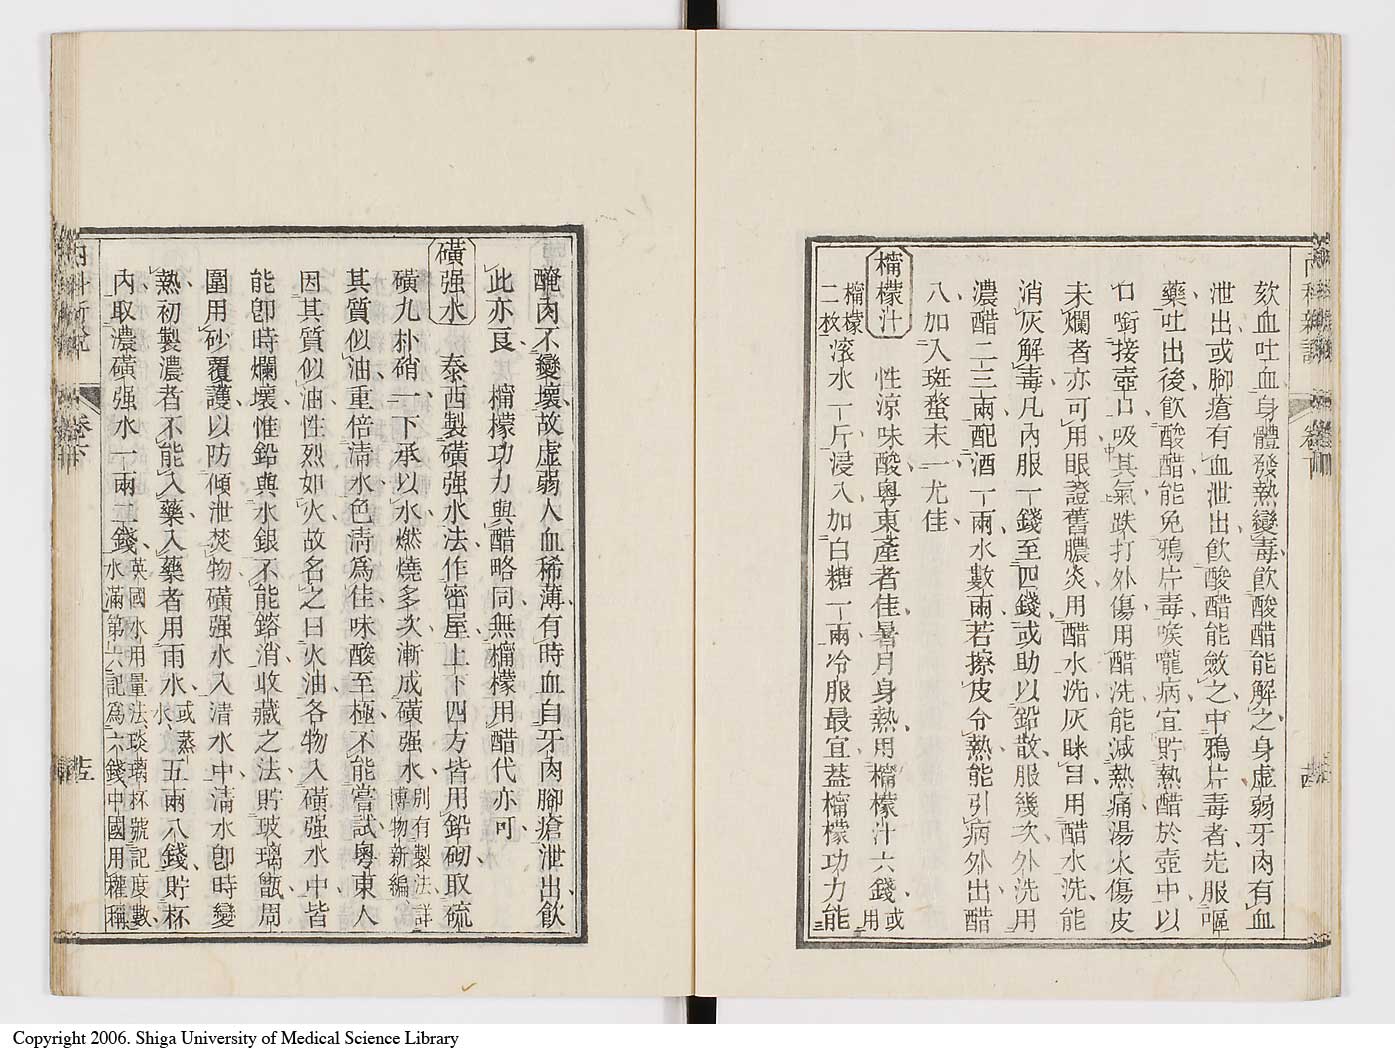 欬血吐血身體發熱變毒飮酸醋能解之身虛弱牙肉有血
泄出或腳瘡有血泄出飮酸醋能斂之中鴉片毒者先服嘔
藥吐出後飮酸醋能免鴉片毒喉嚨病宜貯熱醋於壺中以
口銜接壺口吸其氣跌打外傷用醋洗能減熱痛湯火傷皮
未爛者亦可用眼證舊膿炎用醋水洗灰眯目用醋水洗能
消灰解毒凡內服一錢至四錢或助以鉛散服幾次外洗用
濃醋二三兩配酒一兩水數兩若擦皮令熱能引病外出醋
八加入斑蝥末一尤佳
檸檬汁 性涼味酸粵東產者佳暑月身熱用檸檬汁六錢或用
檸檬二枚滚水一斤浸入加白糖一兩冷服最宜葢檸檬功力能
內科新說
卷下
醃肉不變壞故虛弱人血稀薄有時血自牙肉腳瘡泄出飮
此亦良 檸檬功力與醋略同無檸檬用醋代亦可
磺强水 泰西製磺强水法作密屋上下四方皆用鉛砌取硫
磺九朴硝一下承以水燃燒多次漸成磺强水別有製法詳博物新編
其質似油重倍淸水色淸爲佳味酸至極不能嘗試粵東人
因其質似油性烈如火故名之曰火油各物入磺强水中皆
能卽時爛壞惟鉛與水銀不能鎔消收藏之法貯玻璃甑周
圍用砂覆護以防傾泄焚物磺强水入淸水中淸水卽時變
熱初製濃者不能入藥入藥者用雨水或蒸水五兩八錢貯杯
內取濃磺强水一兩二錢英國水用量法琰璃杯號記度數水滿第六記爲六錢中國用權稱
內科新說
卷下